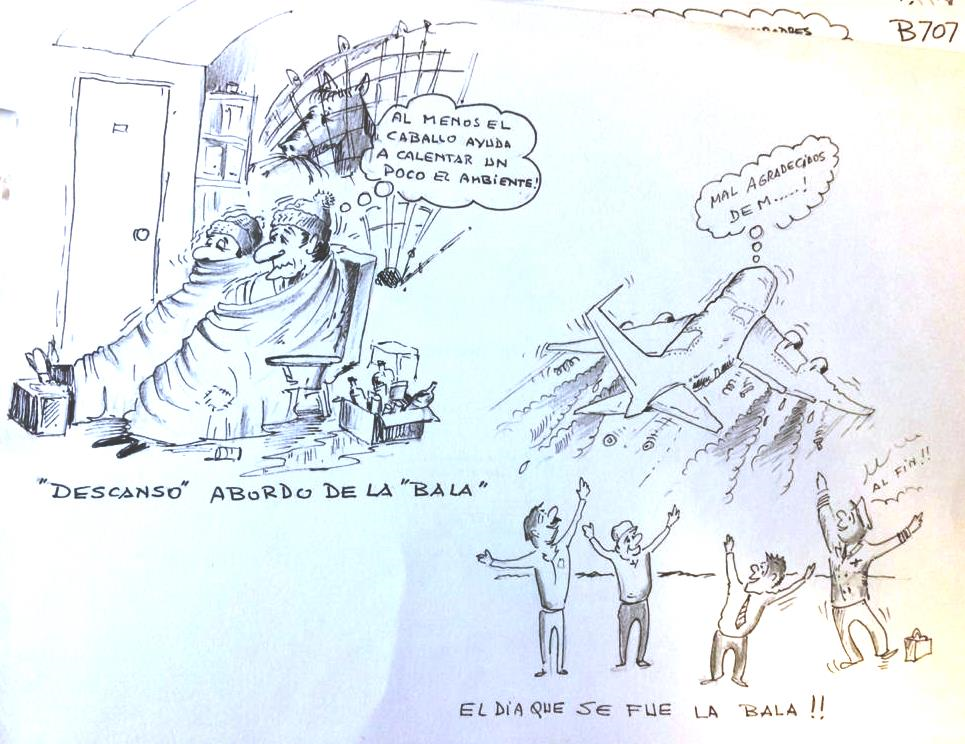 B707
AL MENOS EL
CABALLO AYUDA
A CALENTAR UN
POCO EL AMBIENTE!
"DESCANSO" ABORDO DE LA "BALA"
MAL AGRADECIDOS
DE M......!
AL FIN!!
EL DIA QUE SE FUE LA BALA!!